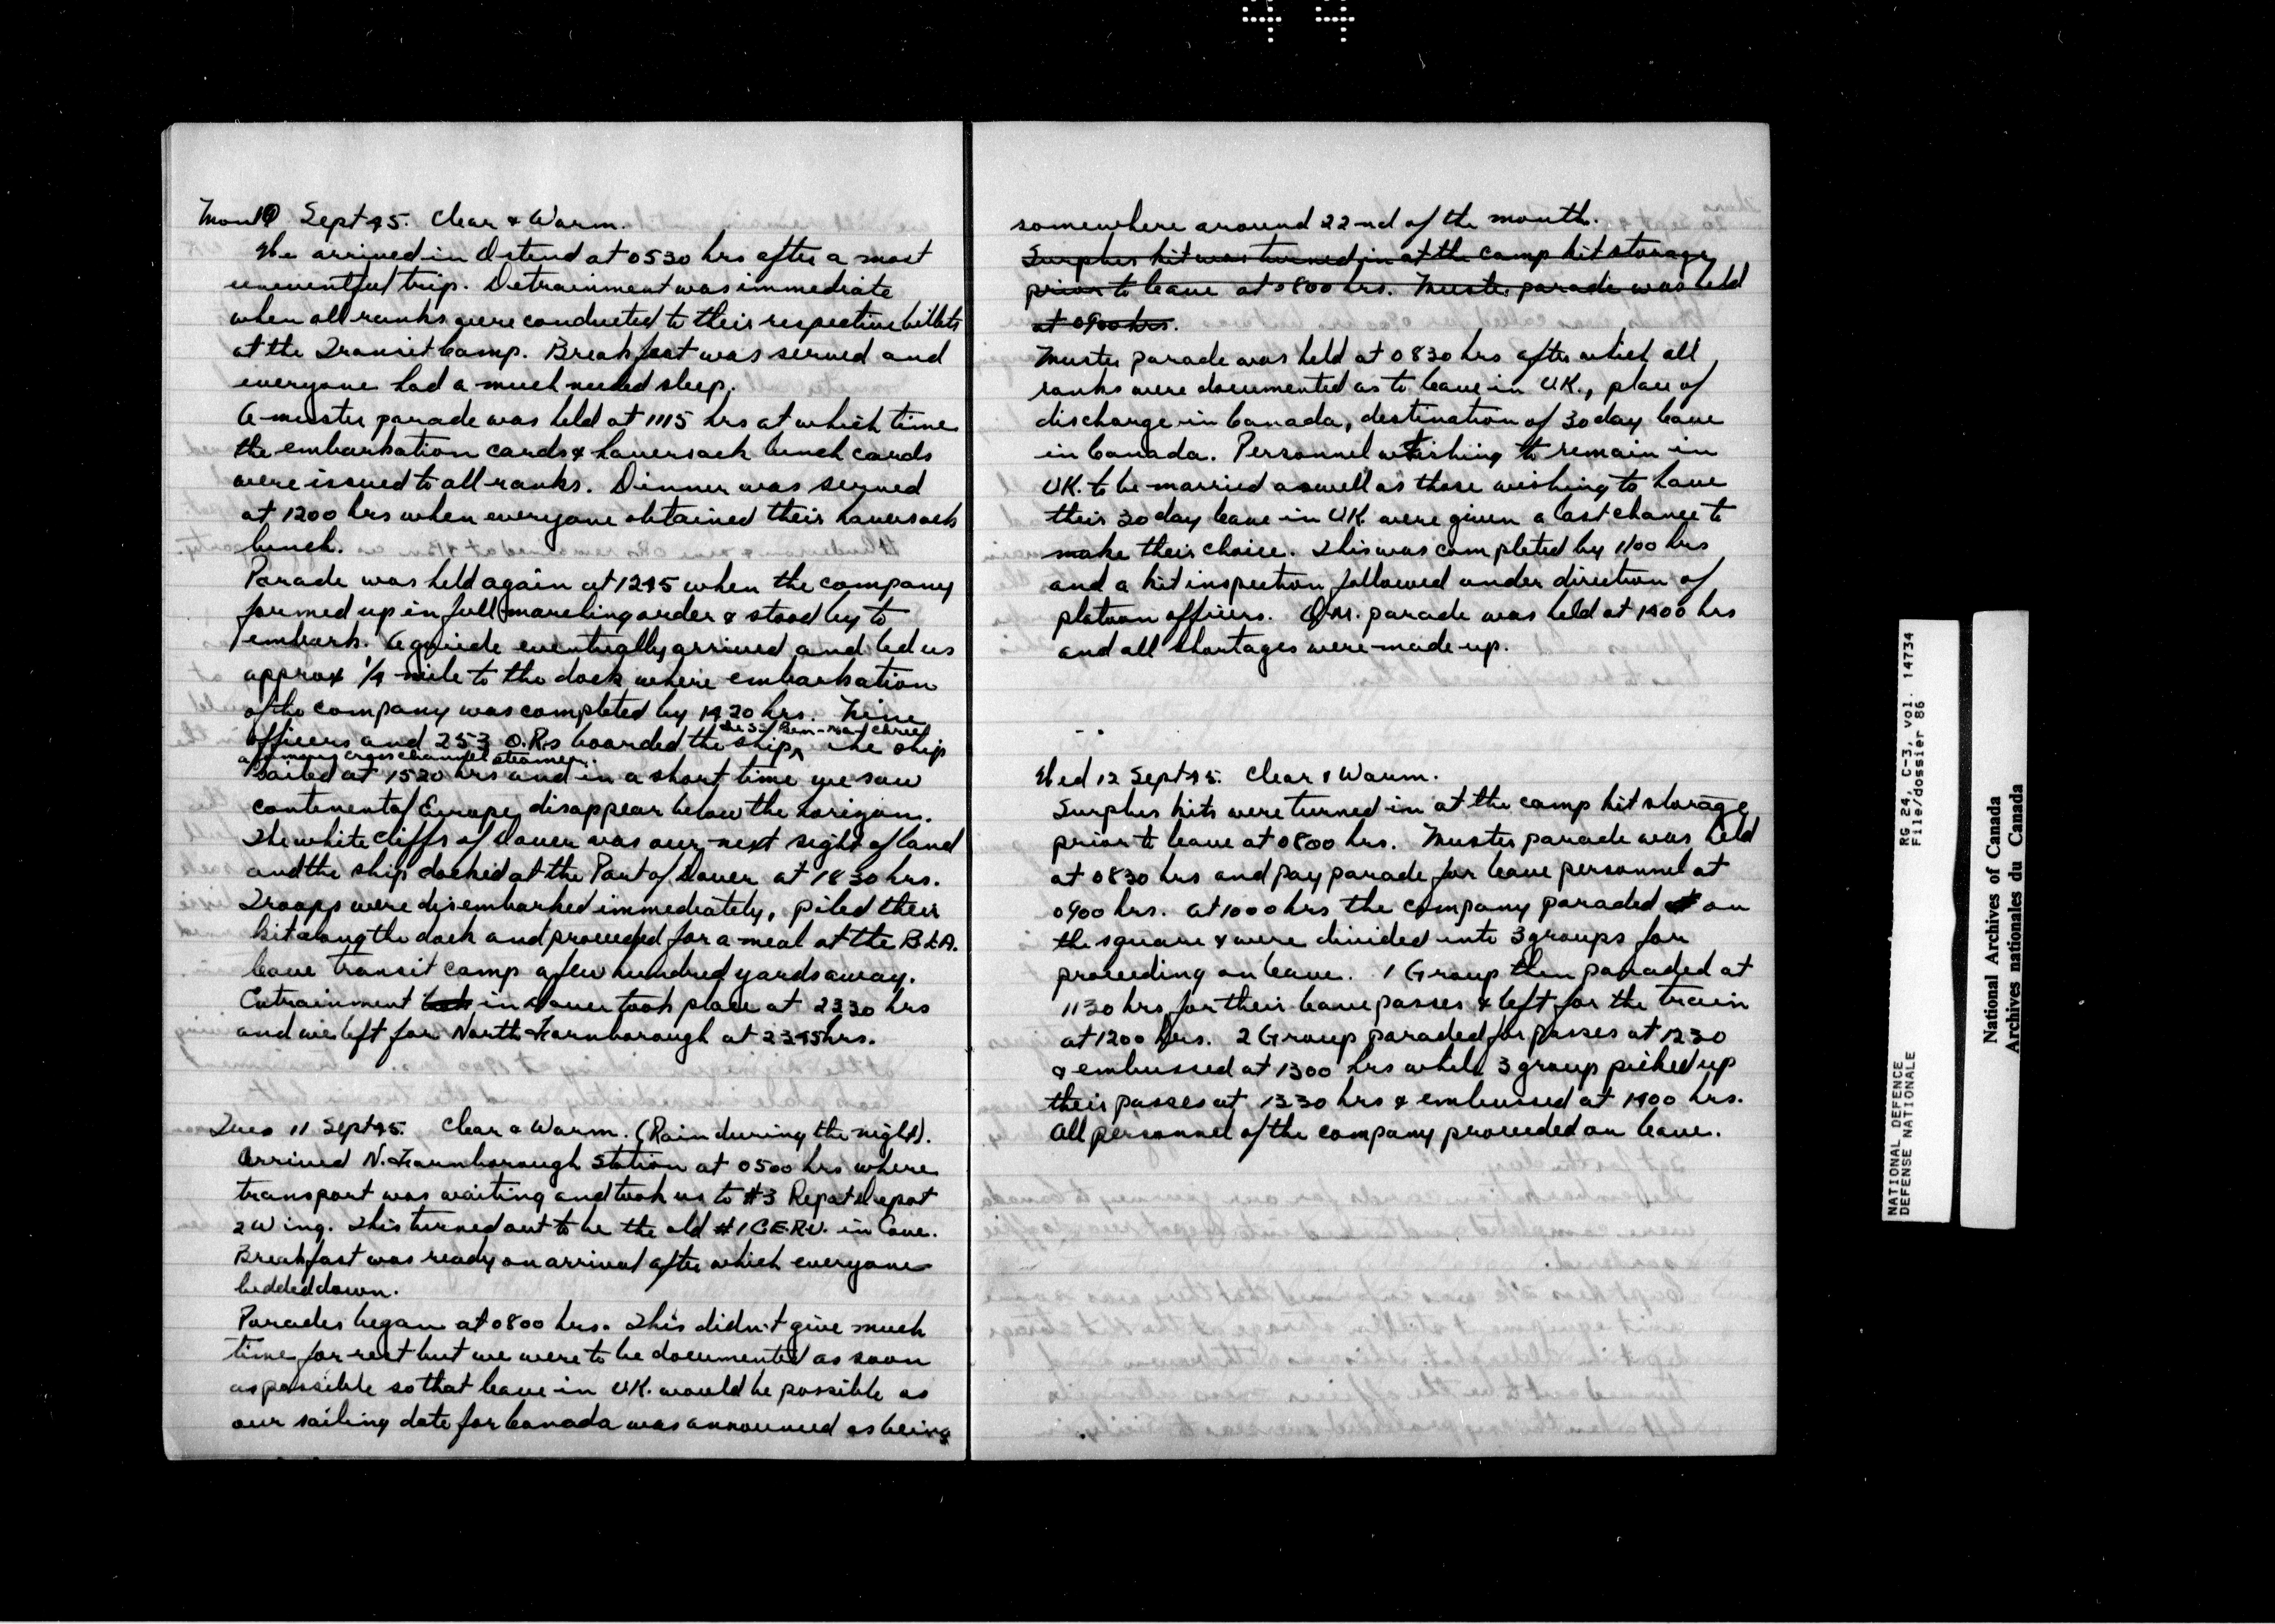 44
Mon 10 Sept 45. Clear & Warm.
We arrived in Ostend at 0530 hrs after a most
uneventful trip. Detrainment was immediate
when all ranks were conducted to their respective billets
at the Transit Camp. Breakfast was served and
everyone had a much needed sleep.
A muster parade was held at 1115 hrs at which time
the embarkation cards & haversack lunch cards
were issued to all ranks. Dinner was served
at 1200 hrs when everyone obtained their haversack
lunch.
Parade was held again at 1245 when the company
formed up in full marching order & stood by to
embark. A guide eventually arrived and led us
approx 1/4 mile to the dock where embarkation
of the company was completed by 1420 hrs. Nine
the SS Ben-my-Chree
officers and 253 O.R.s boarded the ship, The ship
a cross channel steamer.
sailed at 1520 hrs and in a short time we saw
continental Europe disappear below the horizon.
The white cliffs of Dover was our next sight of land
and the ship docked at the Port of Dover at 1830 hrs.
Troops were disembarked immediately, piled their
kit along the dock and proceeded for a meal at the B.L.A.
leave transit camp a few hundred yards away.
Entrainment took in Dover took place at 2330 hrs
and we left for North Farnborough at 2345 hrs.
Tues 11 Sept 45. Clear & Warm. (Rain during the night).
Arrived N. Farnborough Station at 0500 hrs where
transport was waiting and took us to #3 Repat Depot
2 Wing. This turned out to be the old #1 C.E.R.U. in Cove.
Breakfast was ready on arrival after which everyone
bedded down.
Parades began at 0800 hrs. This didn't give much
time for rest but we were to be documented as soon
as possible so that leave in UK. would be possible as
our sailing date for Canada was announced as being
somewhere around 22nd of the month.
Surplus kit was turned in at the camp kit storage
prior to leave at 0800 hrs. Muster parade was held
at 0900 hrs.
Muster parade was held at 0830 hrs after which all
ranks were documented as to leave in UK., place of
discharge in Canada, destination of 30 day leave
in Canada. Personnel wishing to remain in
UK. to be married as well as those wishing to have
their 30 day leave in UK. were given a last chance to
make their choice. This was completed by 1100 hrs
and a kit inspection followed under direction of
platoon officers. Q.M. parade was held at 1400 hrs
and all shortages were made up.
Wed 12 Sept 45. Clear & Warm.
Surplus kits were turned in at the camp kit storage
prior to leave at 0800 hrs. Muster parade was held
at 0830 hrs and pay parade for leave personnel at
0900 hrs. At 1000 hrs the company paraded on
the square & were divided into 3 groups for
proceeding on leave. 1 Group then paraded at
1130 hrs for their leave passes & left for the train
at 1200 hrs. 2 Group paraded for passes at 1230
& embussed at 1300 hrs while 3 group picked up
their passes at 1330 hrs & embussed at 1400 hrs.
All personnel of the company proceeded on leave.
NATIONAL DEFENCE RG 24, C-3, vol. 14734
DEFENSE NATIONALE File/dossier 86
National Archives of Canada
Archives nationales du Canada